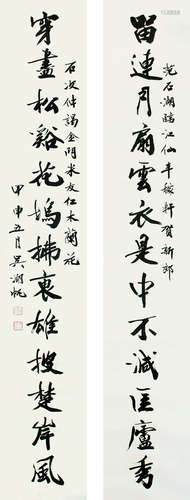 留連月扇雲衣是中不減匡廬秀
范石湖臨江仙辛稼軒賀新郎
穿盡松谿花塢拂衷雄搜楚岸風
石次仲謁金門米友仁木蘭花
甲申五月吳湖帆